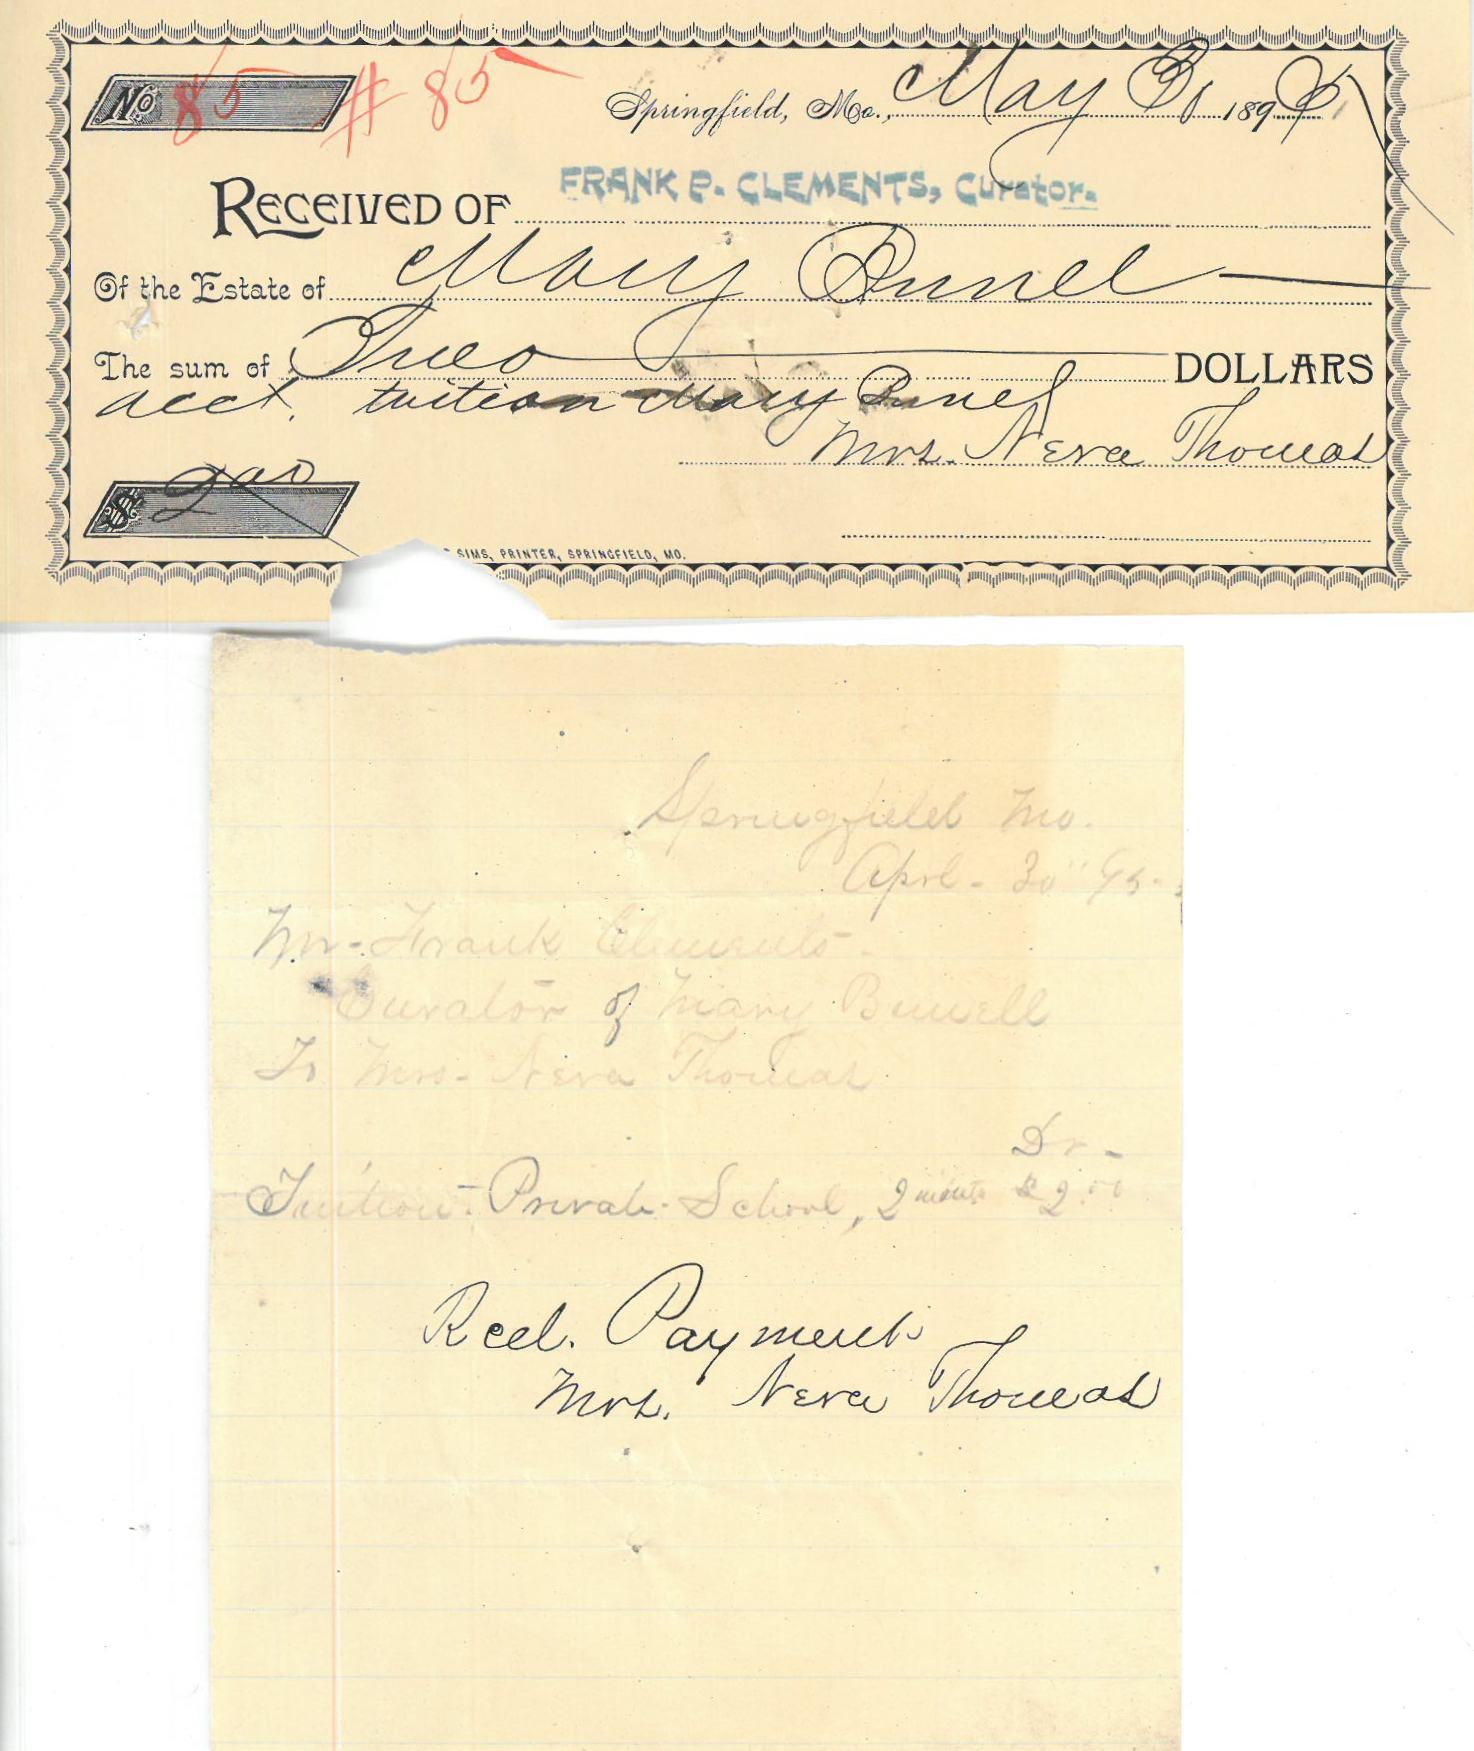 No. 85 # 85
Springfield, Mo., May 31 1895
FRANK P. CLEMENTS, Curator.
RECEIVED OF
Of the Estate of Mary Bunel
The sum of Two DOLLARS
acct. tuition Mary Bunel
Mrs. Neva Thomas
$ 2 00
SIMS, PRINTER, SPRINGFIELD, MO.
Springfield Mo.
Aprl - 30" 95-
Mr- Frank Clements-
Curator of Mary Bunell
To Mrs- Neva Thomas
Dr-
Tuition- Private- School, 2 month $2.00
Recd. Payment
Mrs. Neva Thomas